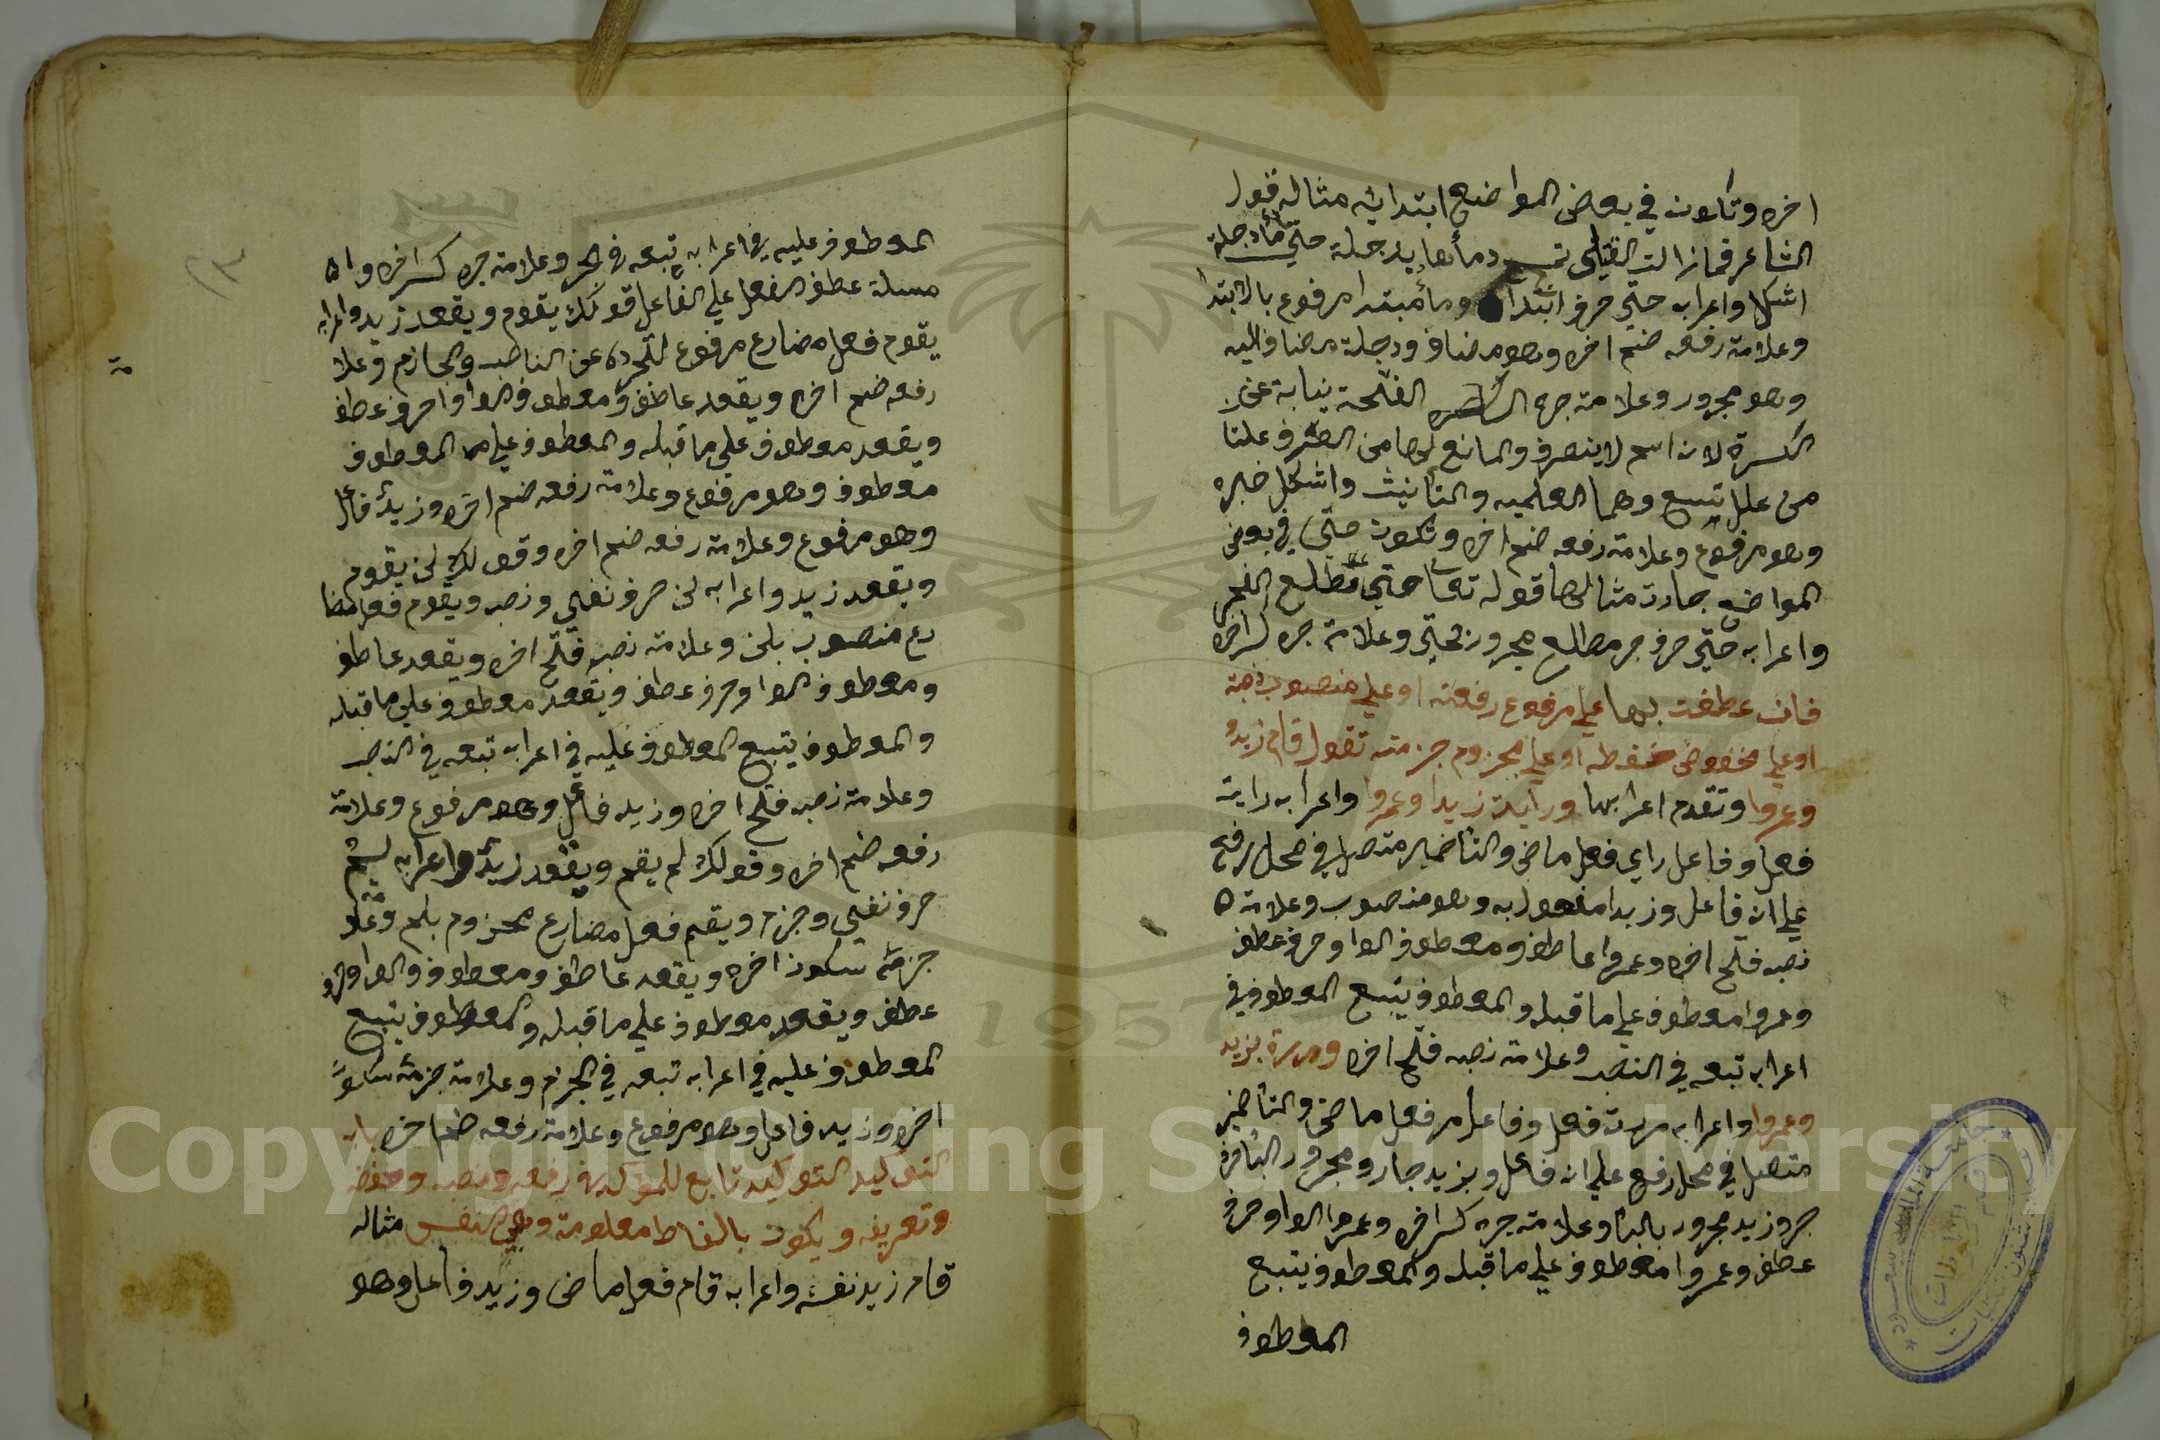 اخره وتكون في بعض المواضع ابتدائيه مثاله قول
الشاعر فمازالت القتلى تمج دمأها بدجلة حتى ماء دجلة
اشكل واعرابه حتى حرف ابتدا وماء مبتدا مرفوع بالابتدا
وعلامة رفعه ضم اخره وهو مضاف ودجلة مضاف اليه
وهو مجرور وعلامة جره الفتحة نيابة عن
الكسرة لانه اسم لا ينصرف والمانع لها من الصرف علتا
من علل تسع وهما العلميه والتأنيث واشكل خبره
وهو مرفوع وعلامة رفعه ضم اخره وتكون حتى في بعض
المواضع جارة مثالها قوله تعا حتى مطلع الفجر
واعرابه حتى حرف جر مطلع مجرور بحتى وعلامة جره كسر اخره
فان عطفت بها علي مرفوع رفعته او علي منصوب نصبته
او علي مخفوض خفضته او علي مجزوم جزمته تقول قام زيد
وعمروا وتقدم اعرابها ورايت زيدا وعمروا واعرابه رايت
فعل وفاعل راي فعل ماضي والتا ضمير متصل في محل رفع
علي انه فاعل وزيدا مفعول به وهو منصوب وعلامة
نصبه فتح اخره وعمروا عاطف ومعطوف الواو حرف عطف
وعمروا معطوف علي ما قبله والمعطوف يتبع المعطوف في
اعرابه تبعه في النصب وعلامة نصبه فتح اخره ومررت بزيد
وعمروا واعرابه مررت فعل وفاعل مر فعل ماضي والتا ضمير
متصل في محل رفع علي انه فاعل وبزيد جار ومجرور البا حرف
جر وزيد مجرور بالبا وعلامة جره كسر اخره وعمروا الواو حرف
عطف وعمروا معطوف علي ما قبله والمعطوف يتبع
المعطوف
المعطوف عليه في اعرابه تبعه في الجر وعلامة جره كسر اخره وان
مسلة عطف الفعل علي الفاعل قولك يقوم ويقعد زيد واعرابه
يقوم فعل مضارع مرفوع لتجرده عن الناصب والجازم وعلا
رفعه ضم اخره ويقعد عاطف ومعطوف الواو حرف عطف
ويقعد معطوف علي ما قبله والمعطوف علي المعطوف
معطوف وهو مرفوع وعلامة رفعه ضم اخره وزيد فاعل
وهو مرفوع وعلامة رفعه ضم اخره وقولك لن يقوم
ويقعد زيد واعرابه لن حرف نفي ونصب ويقوم فعل مضا
رع منصوب بلن وعلامة نصبه فتح اخره ويقعد عاطف
ومعطوف الواو حرف عطف ويقعد معطوف علي ما قبله
والمعطوف يتبع المعطوف عليه في اعرابه تبعه في النصب
وعلامة نصبه فتح اخره وزيد فاعل وهو مرفوع وعلامة
رفعه ضم اخره وقولك لم يقم ويقعد زيد واعرابه لم
حرف نفي وجزم ويقم فعل مضارع مجزوم بلم وعلا
جزمه سكون اخره ويقعد عاطف ومعطوف والواو حرف
عطف ويقعد معطوف علي ما قبله والمعطوف يتبع
المعطوف عليه في اعرابه تبعه في الجزم وعلامة جزمه سكون
اخره وزيد فاعل وهو مرفوع وعلامة رفعه ضم اخره باب
التوكيد التوكيد تابع للموكد في رفعه ونصبه وخفضه
وتعريفه ويكون بالفاظ معلومة وهي النفس مثاله
قام زيد نفسه واعرابه قام فعل ماضي وزيد فاعل وهو
Copyright © King Saud University
1957